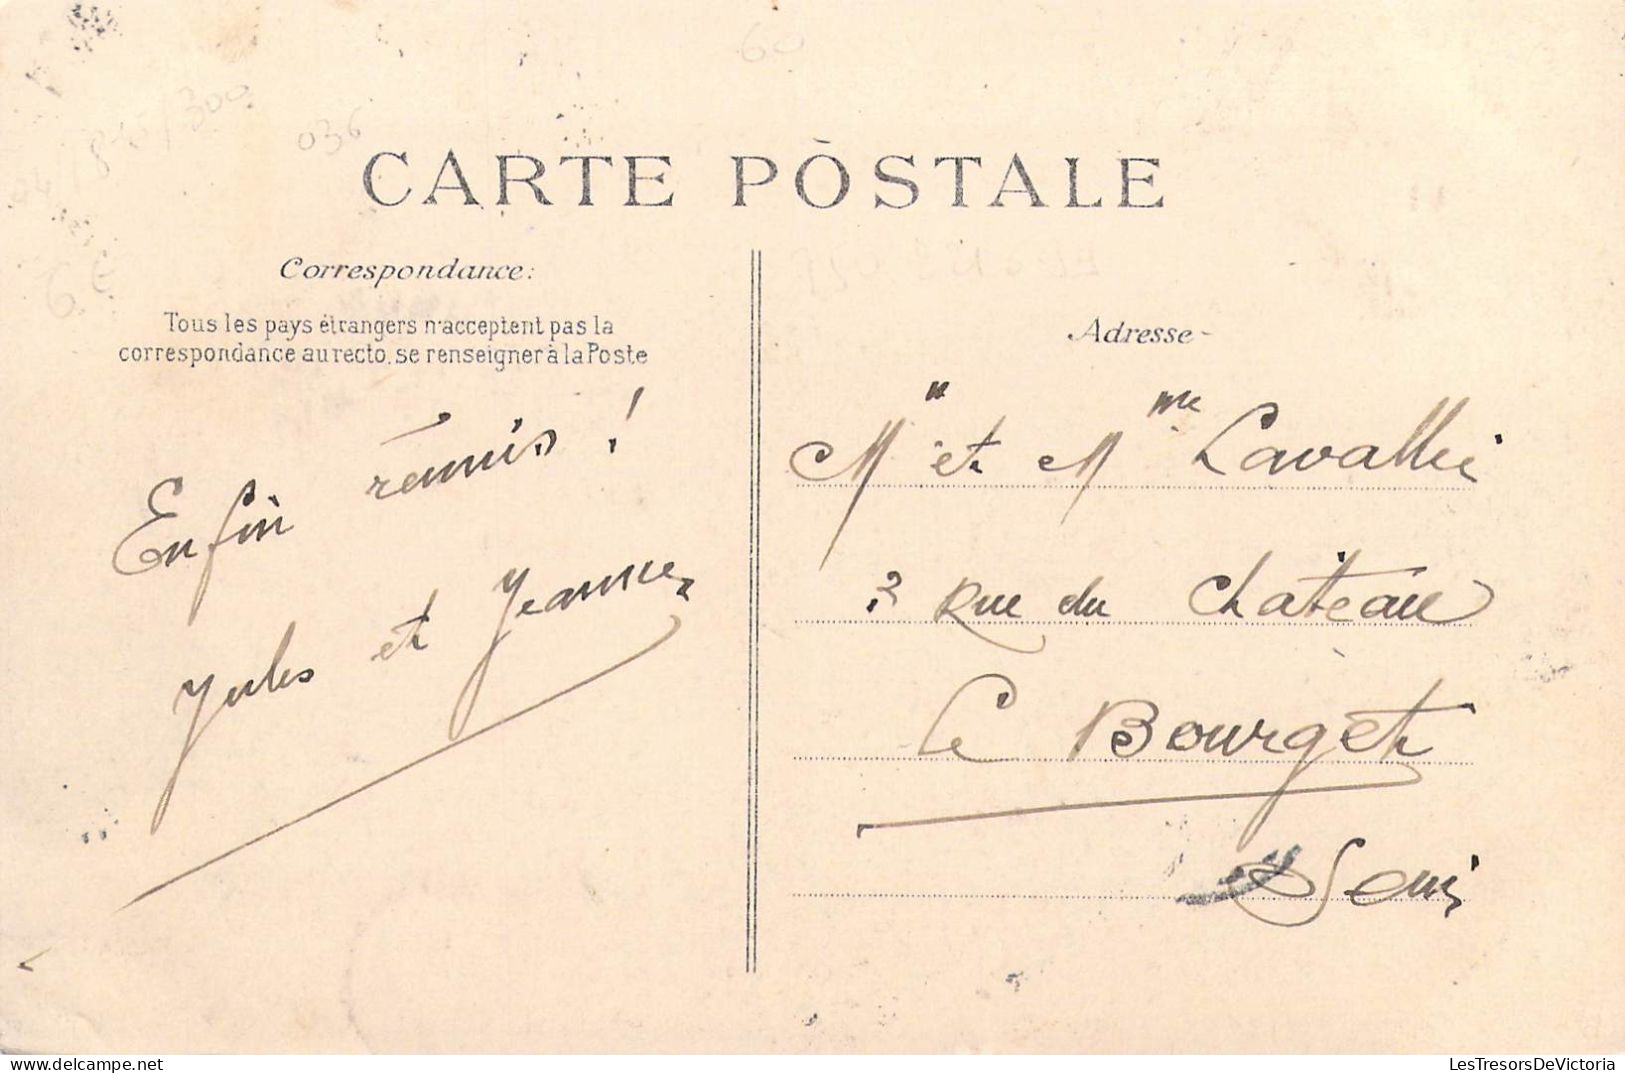 60
04/815/300
036
6 €
CARTE POSTALE
Correspondance:
Tous les pays étrangers n'acceptent pas la
correspondance au recto, se renseigner à la Poste
Enfin réunis !
Jules et Jeanne
Adresse
Mr et Mme Lavallée
2 Rue du Chateau
Le Bourget
Seine
LesTresorsDeVictoria